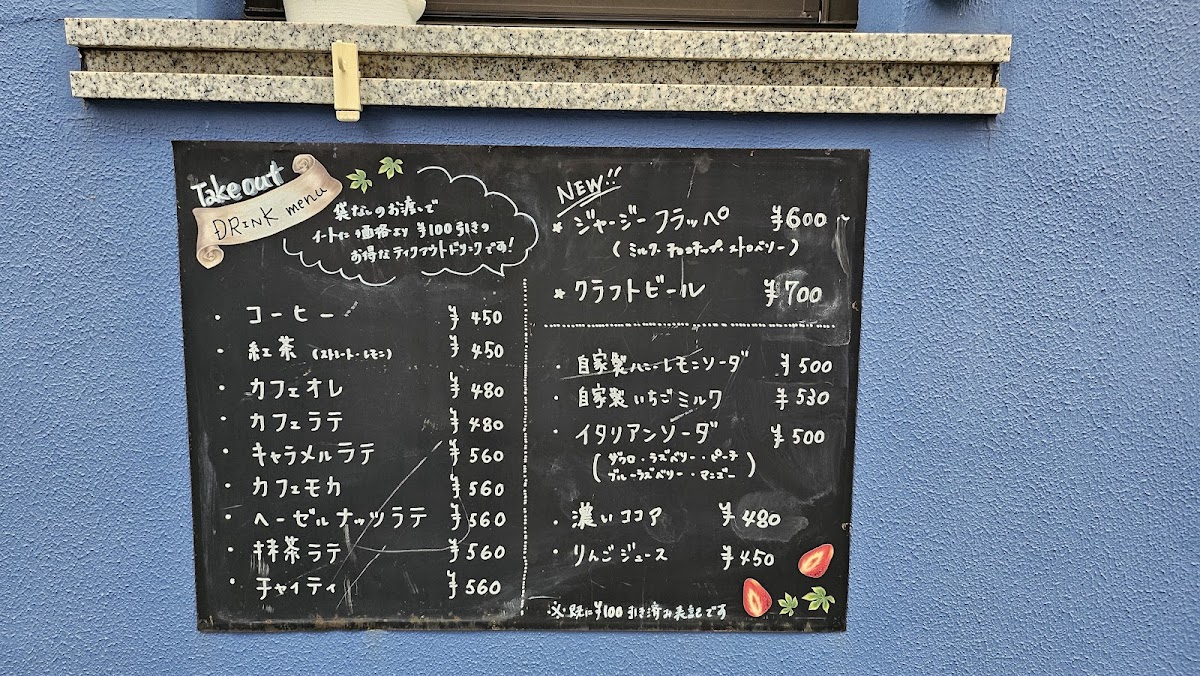 Takeout
DRINK menu
袋なしのお渡しで
イートイン価格より ¥100引きの
お得なテイクアウトドリンクです!
・コーヒー ¥450
・紅茶 (ストレート・レモン) ¥450
・カフェオレ ¥480
・カフェラテ ¥480
・キャラメルラテ ¥560
・カフェモカ ¥560
・ヘーゼルナッツラテ ¥560
・抹茶ラテ ¥560
・チャイティ ¥560
NEW!!
★ジャージーフラッペ ¥600
(ミルク・チョコチップ・ストロベリー)
★クラフトビール ¥700
・自家製ハニーレモンソーダ ¥500
・自家製いちごミルク ¥530
・イタリアンソーダ ¥500
(ザクロ・ラズベリー・ピーチ
ブルーラズベリー・マンゴー)
・濃いココア ¥480
・りんごジュース ¥450
※既に¥100引き済み表記です